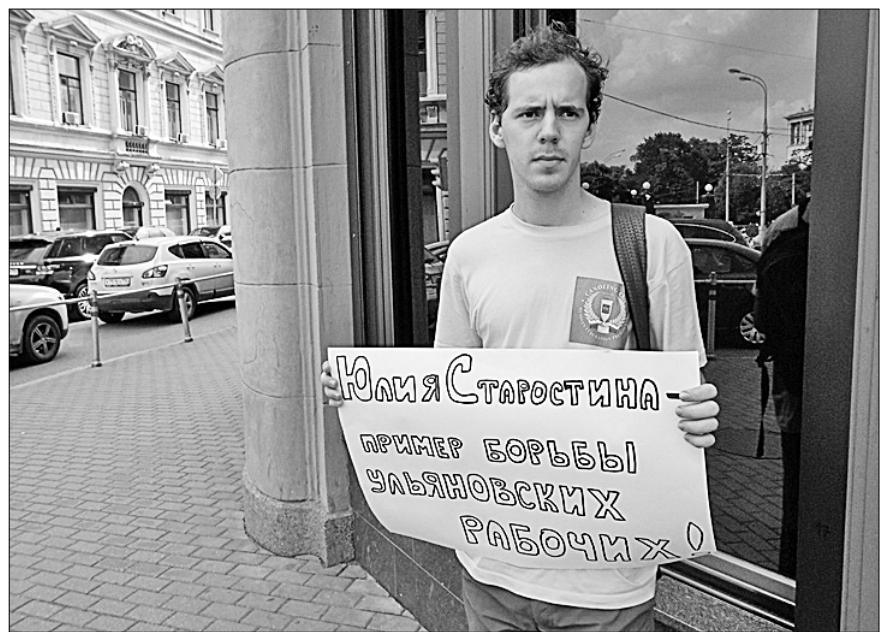 Юлия Старостина -
пример борьбы
ульяновских
рабочих!